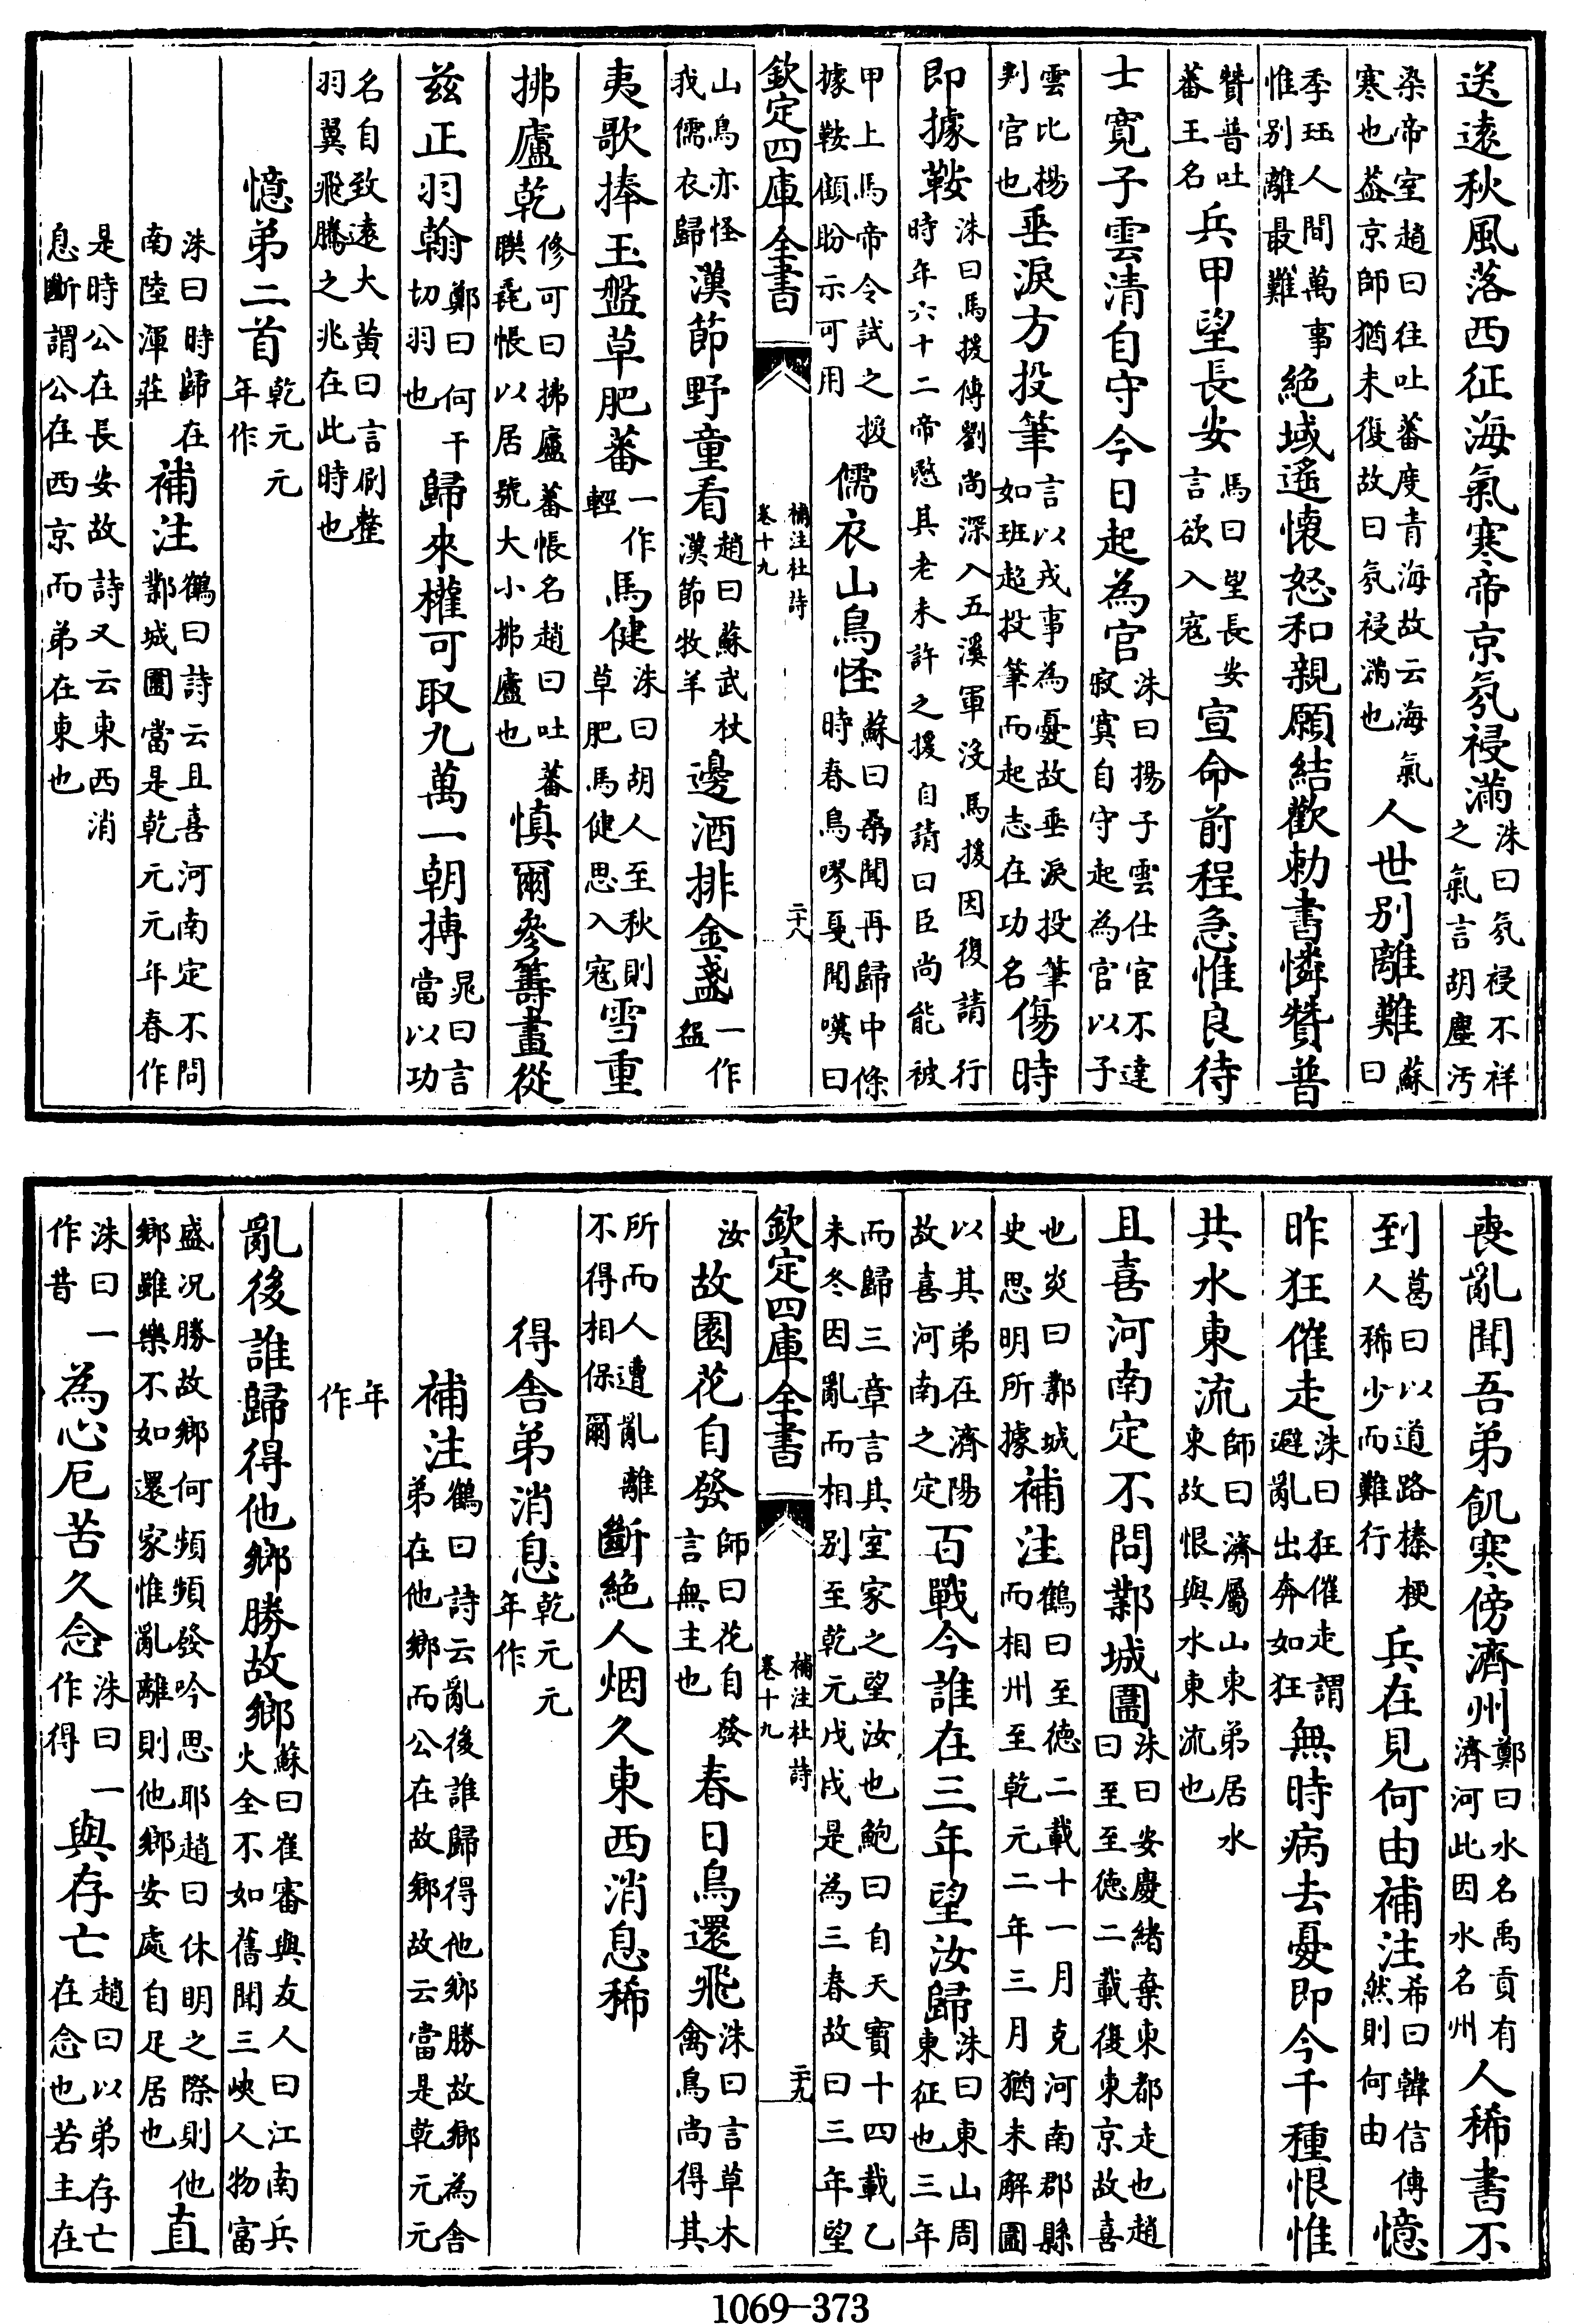 送遠秋風落西征海氣寒帝京氛祲滿洙曰氛祲不祥之氣言胡塵汚
染帝室趙曰往吐蕃度青海故云海氣寒也葢京師猶未復故曰氛祲滿也人世别離難蘇曰
季珏人間萬事惟别離最難絶域遙懐怒和親願結歡勅書憐贊普
贊普吐蕃王名兵甲望長安馬曰望長安言欲入宼宣命前程急惟良待
士寛子雲清自守今日起為官洙曰揚子雲仕宦不達寂寞自守起為官以子
雲比楊判官也垂淚方投筆言以戎事為憂故垂淚投筆如班超投筆而起志在功名傷時
即據鞍洙曰馬援傳劉尚深入五溪軍沒馬援因復請行時年六十二帝愍其老未許之援自請曰臣尚能被
甲上馬帝令試之援據鞍顧盼示可用儒衣山鳥怪蘇曰桑聞再歸中條時春鳥嘐戛聞嘆曰
欽定四庫全書 補注杜詩 卷十九 二十八
山鳥亦怪我儒衣歸漢節野童看趙曰蘇武杖漢節牧羊邊酒排金盞一作盌
夷歌捧玉盤草肥蕃一作輕馬健洙曰胡人至秋則草肥馬健思入宼雪重
拂廬乾修可曰拂廬蕃帳名趙曰吐蕃聯毳帳以居號大小拂廬也慎爾參籌畫從
兹正羽翰鄭曰何干切羽也歸來權可取九萬一朝摶晁曰言當以功
名自致遠大黄曰言刷整羽翼飛騰之兆在此時也
憶弟二首乾元元年作
洙曰時歸在南陸渾莊補注鶴曰詩云且喜河南定不問鄴城圍當是乾元元年春作
是時公在長安故詩又云東西消息斷謂公在西京而弟在東也
喪亂聞吾弟飢寒傍濟州鄭曰水名禹貢有濟河此因水名州人稀書不
到葛曰以道路榛梗人稀少而難行兵在見何由補注希曰韓信傳然則何由憶
昨狂催走洙曰狂催走謂避亂出奔如狂無時病去憂即今千種恨惟
共水東流師曰濟屬山東弟居水東故恨與水東流也
且喜河南定不問鄴城圍洙曰安慶緒棄東都走也趙曰至至德二載復東京故喜
也炎曰鄴城史思明所據補注鶴曰至德二載十一月克河南郡縣而相州至乾元二年三月猶未解圍
以其弟在濟陽故喜河南之定百戰今誰在三年望汝歸洙曰東山周東征也三年
而歸三章言其室家之望汝也鮑曰自天寳十四載乙未冬因亂而相别至乾元戊戌是為三春故曰三年望
欽定四庫全書 補注杜詩 卷十九 二十九
汝故園花自發師曰花自發言無主也春日鳥還飛洙曰言草木禽鳥尚得其
所而人遭亂離不得相保爾斷絶人烟久東西消息稀
得舍弟消息乾元元年作
補注鶴曰詩云亂後誰歸得他鄉勝故鄉為舍弟在他鄉而公在故鄉故云當是乾元元
年作
亂後誰歸得他鄉勝故鄉蘇曰崔審與友人曰江南兵火全不如舊聞三峽人物富
盛况勝故鄉何頻頻發吟思耶趙曰休明之際則他鄉雖樂不如還家惟亂離則他鄉安處自足居也直
洙曰一作昔為心厄苦久念洙曰一作得與存亡趙曰以弟存亡在念也苦主在
1069—373